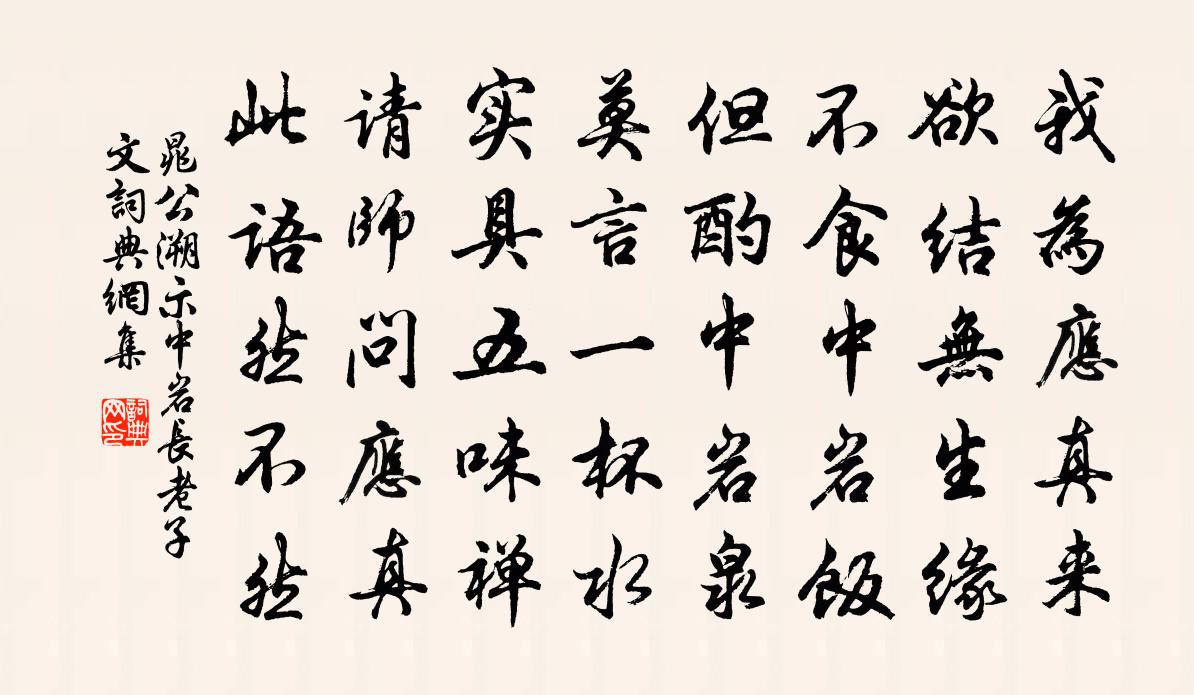 我為應真来
欲结無生缘
不食中岩飯
但酌中岩泉
莫言一杯水
实具五味禅
请師问應真
此语然不然
晁公溯示中岩長老子
文詞典網集
詞典网印